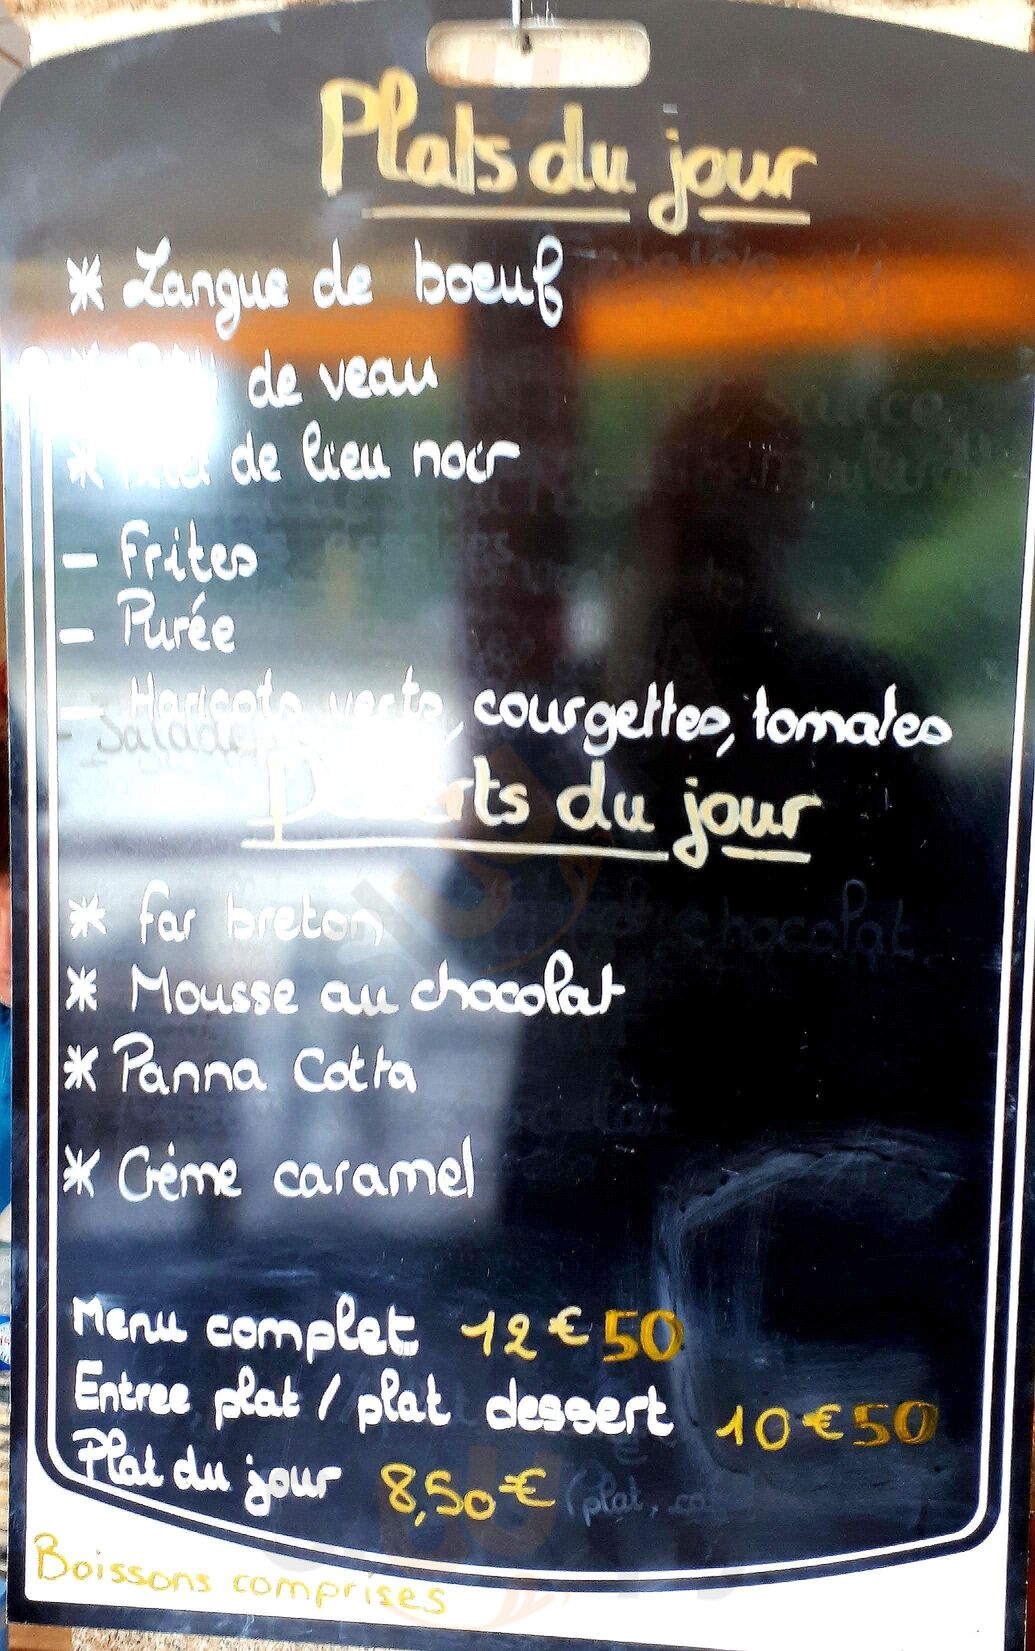 Plats du jour
* Langue de boeuf
* de veau
* de lieu noir
- Frites
- Purée
- Haricots verts, courgettes, tomates
- Salade
Desserts du jour
* Far breton
* Mousse au chocolat
* Panna Cotta
* Crème caramel
Menu complet 12€50
Entree plat / plat dessert 10€50
Plat du jour 8,50€ (plat,
Boissons comprises